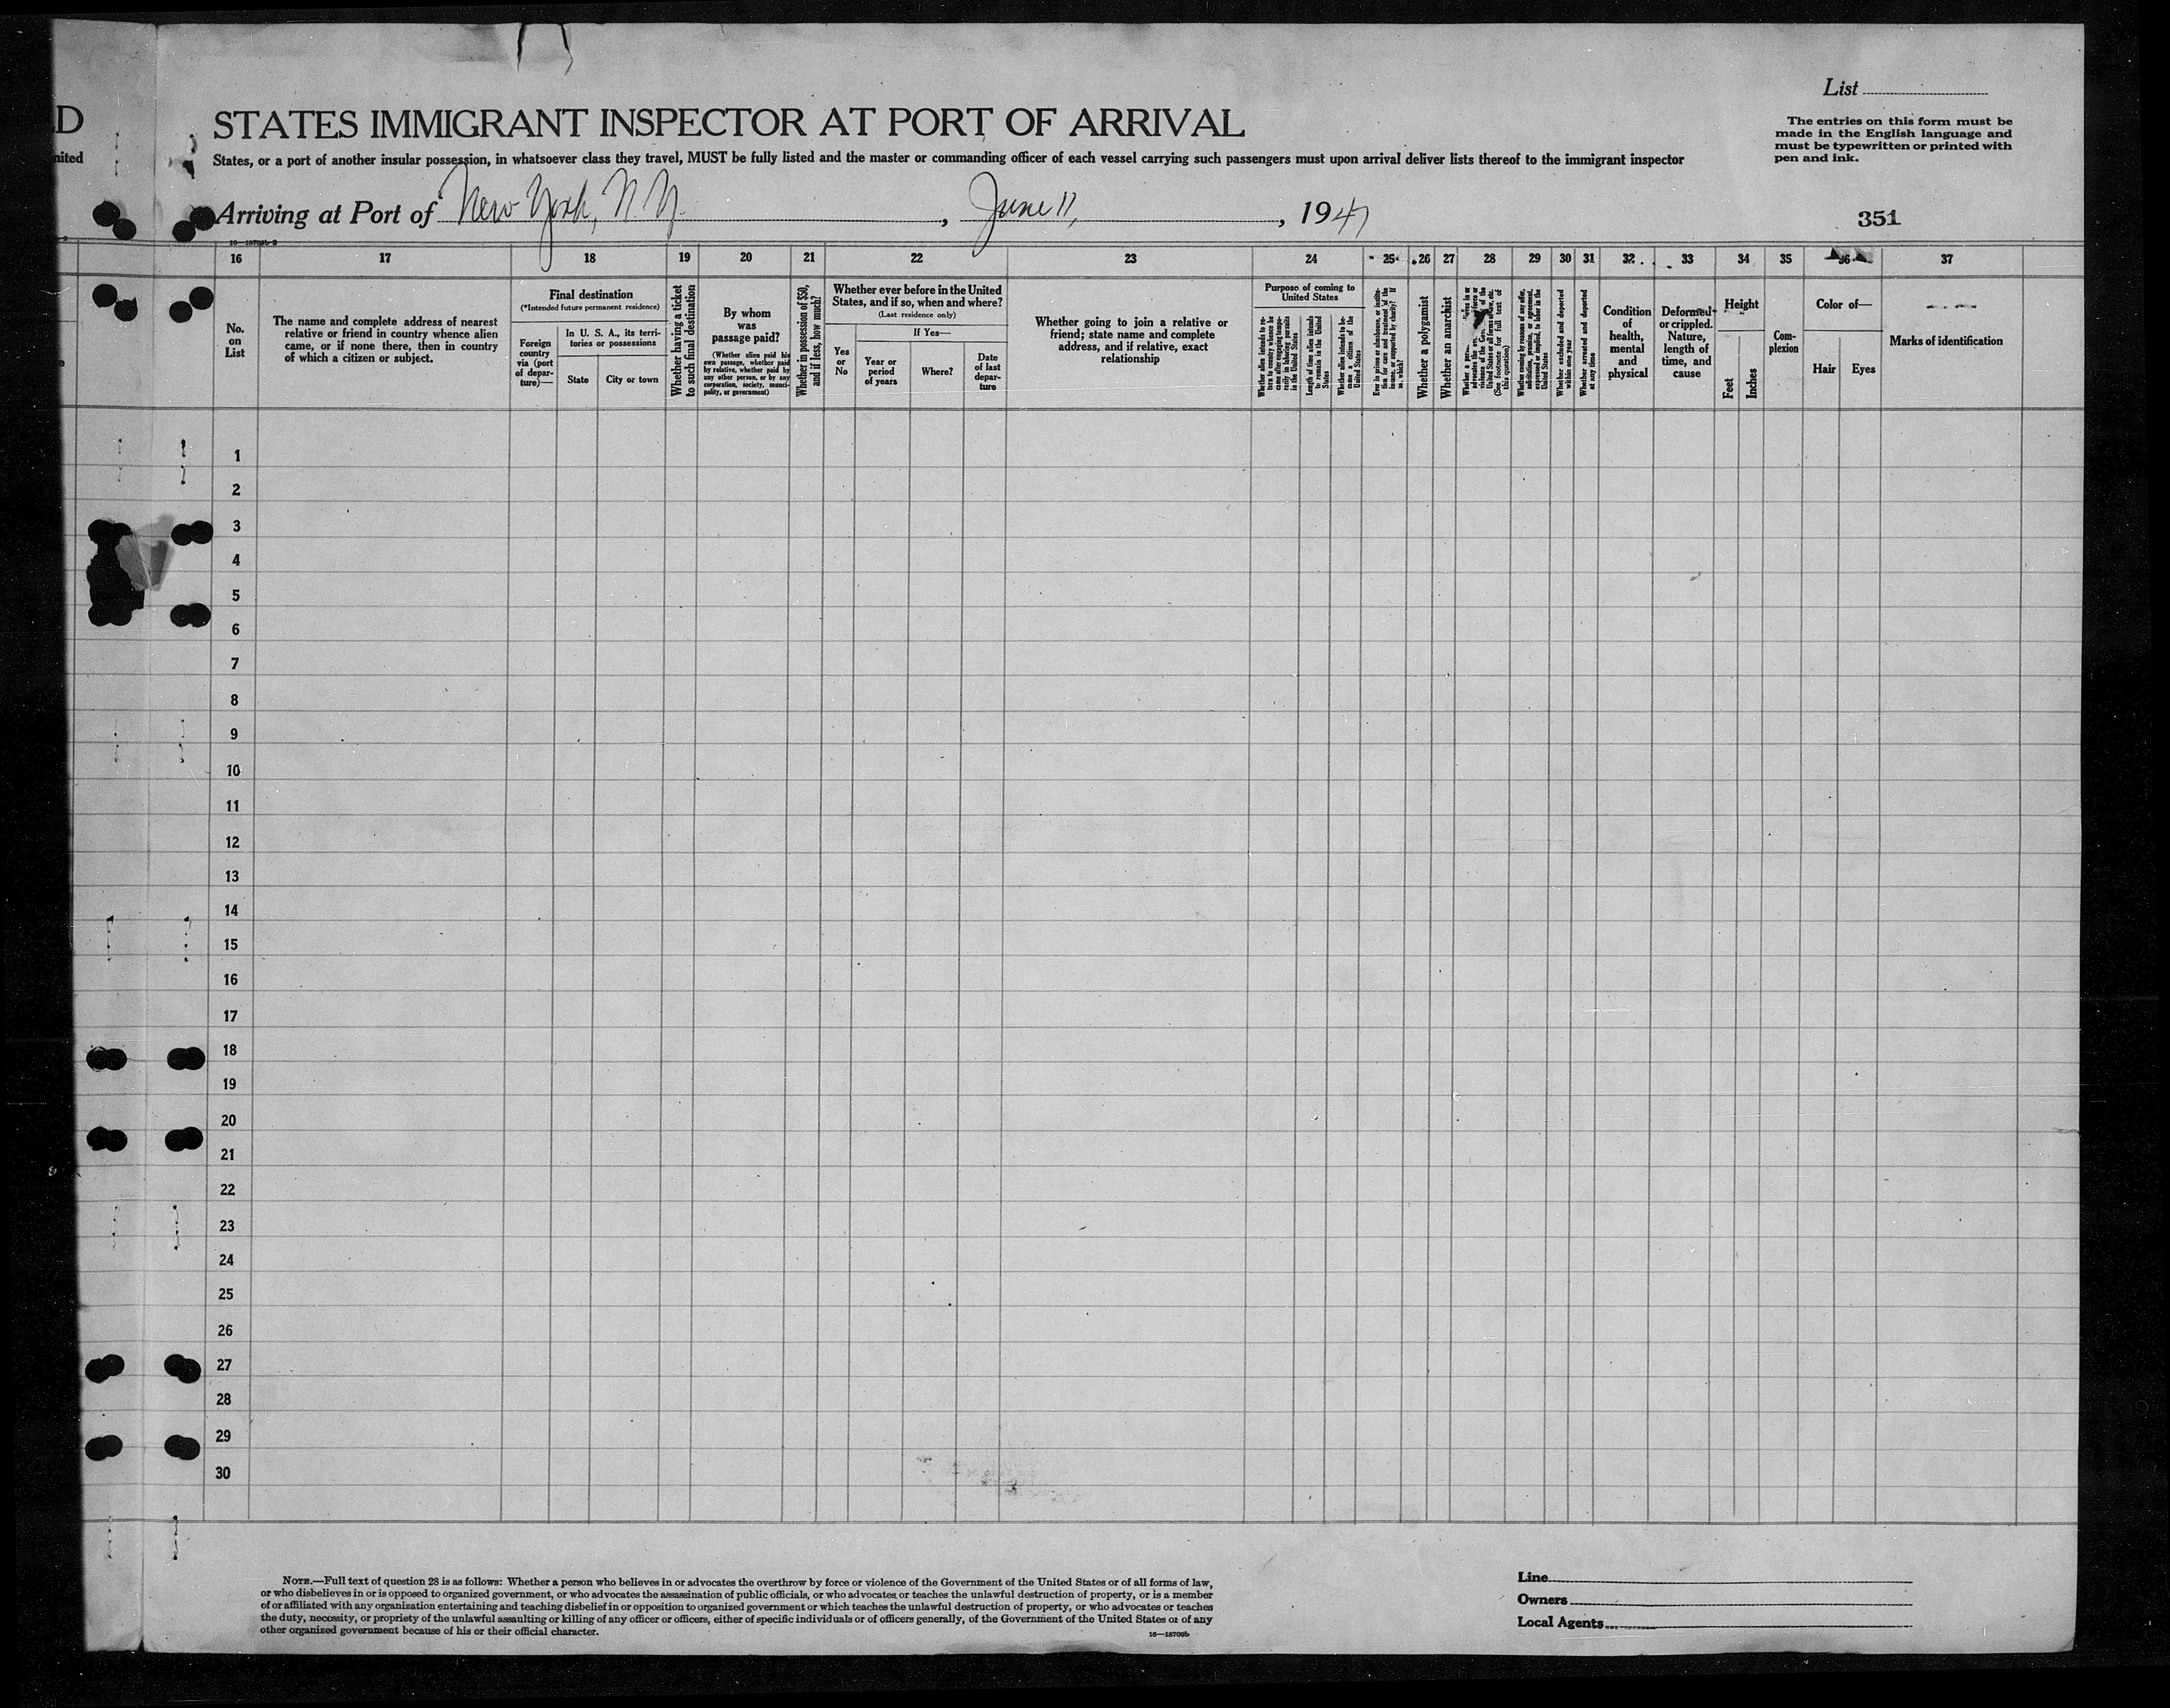 List
D STATES IMMIGRANT INSPECTOR AT PORT OF ARRIVAL
The entries on this form must be
made in the English language and
must be typewritten or printed with
pen and ink.
nited States, or a port of another insular possession, in whatsoever class they travel, MUST be fully listed and the master or commanding officer of each vessel carrying such passengers must upon arrival deliver lists thereof to the immigrant inspector
Arriving at Port of New York, N.Y. , June 11, , 1947
351
16—18709b-2
16 17 18 19 20 21 22 23 24 25 26 27 28 29 30 31 32 33 34 35 36 37
No.
on
List
The name and complete address of nearest
relative or friend in country whence alien
came, or if none there, then in country
of which a citizen or subject.
Final destination
(*Intended future permanent residence)
Foreign
country
via (port
of depar-
ture)—
In U. S. A., its terri-
tories or possessions
State
City or town
Whether having a ticket
to such final destination
By whom
was
passage paid?
(Whether alien paid his
own passage, whether paid
by relative, whether paid by
any other person, or by any
corporation, society, munici-
pality, or government)
Whether in possession of $50,
and if less, how much?
Whether ever before in the United
States, and if so, when and where?
(Last residence only)
Yes
or
No
If Yes—
Year or
period
of years
Where?
Date
of last
depar-
ture
Whether going to join a relative or
friend; state name and complete
address, and if relative, exact
relationship
Purpose of coming to
United States
Whether alien intends to re-
turn to country whence he
came after engaging tempo-
rarily in laboring pursuits
in the United States
Length of time alien intends
to remain in the United
States
Whether alien intends to be-
come a citizen of the
United States
Ever in prison or almshouse, or institu-
tion for care and treatment of the
insane, or supported by charity? If
so, which?
Whether a polygamist
Whether an anarchist
(See footnote for full text of
this question)
Whether coming by reasons of any offer,
solicitation, promise, or agreement,
expressed or implied, to labor in the
United States
Whether excluded and deported
within one year
Whether arrested and deported
at any time
Condition
of
health,
mental
and
physical
Deformed
or crippled.
Nature,
length of
time, and
cause
Height
Feet
Inches
Com-
plexion
Color of—
Hair
Eyes
Marks of identification
1
2
3
4
5
6
7
8
9
10
11
12
13
14
15
16
17
18
19
20
21
22
23
24
25
26
27
28
29
30
NOTE.—Full text of question 28 is as follows: Whether a person who believes in or advocates the overthrow by force or violence of the Government of the United States or of all forms of law,
or who disbelieves in or is opposed to organized government, or who advocates the assassination of public officials, or who advocates or teaches the unlawful destruction of property, or is a member
of or affiliated with any organization entertaining and teaching disbelief in or opposition to organized government or which teaches the unlawful destruction of property, or who advocates or teaches
the duty, necessity, or propriety of the unlawful assaulting or killing of any officer or officers, either of specific individuals or of officers generally, of the Government of the United States or of any
other organized government because of his or their official character.
16—18709b
Line
Owners
Local Agents